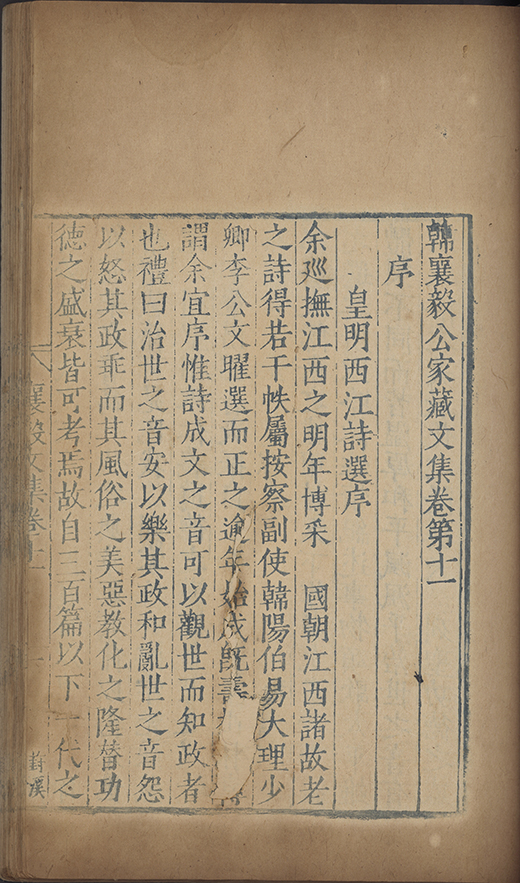 韓襄毅公家藏文集卷第十一
序
皇明西江詩選序
余廵撫江西之明年博采 國朝江西諸故老
之詩得若干帙屬按察副使韓陽伯易大理少
卿李公文曜選而正之逾年始成旣壽
謂余宜序惟詩成文之音可以觀世而知政者
也禮曰治世之音安以樂其政和亂世之音怨
以怒其政乖而其風俗之美惡教化之隆替功
德之盛衰皆可考焉故自三百篇以下一代之
襄毅文集卷十一
葑溪